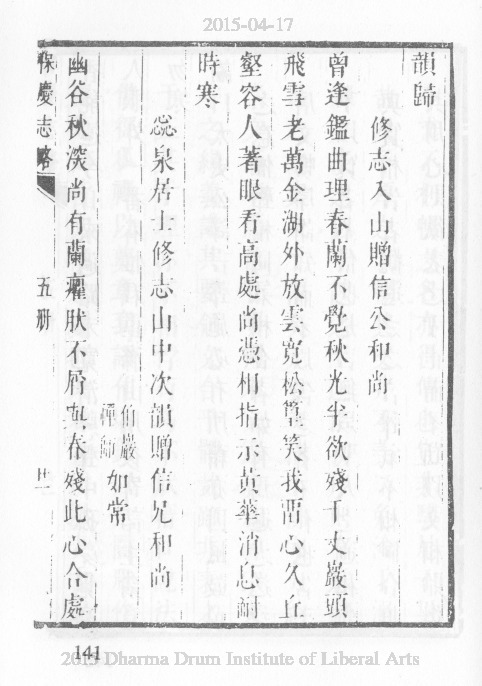 2015-04-17
韻歸
修志入山贈信公和尚
曾逢鑑曲理春蘭不覺秋光半欲殘千丈巖頭
飛雪老萬金湖外放雲寬松篁笑我酉心久丘
壑容人著眼看高處尚憑相指示黃華消息耐
時寒
蕊泉居士修志山中次韻贈信兄和尚
伯巖禪師如常
幽谷秋淡尚有蘭癯肰不屑與春殘此心合處
保慶志略 五册
141
2015 Dharma Drum Institute of Liberal Arts